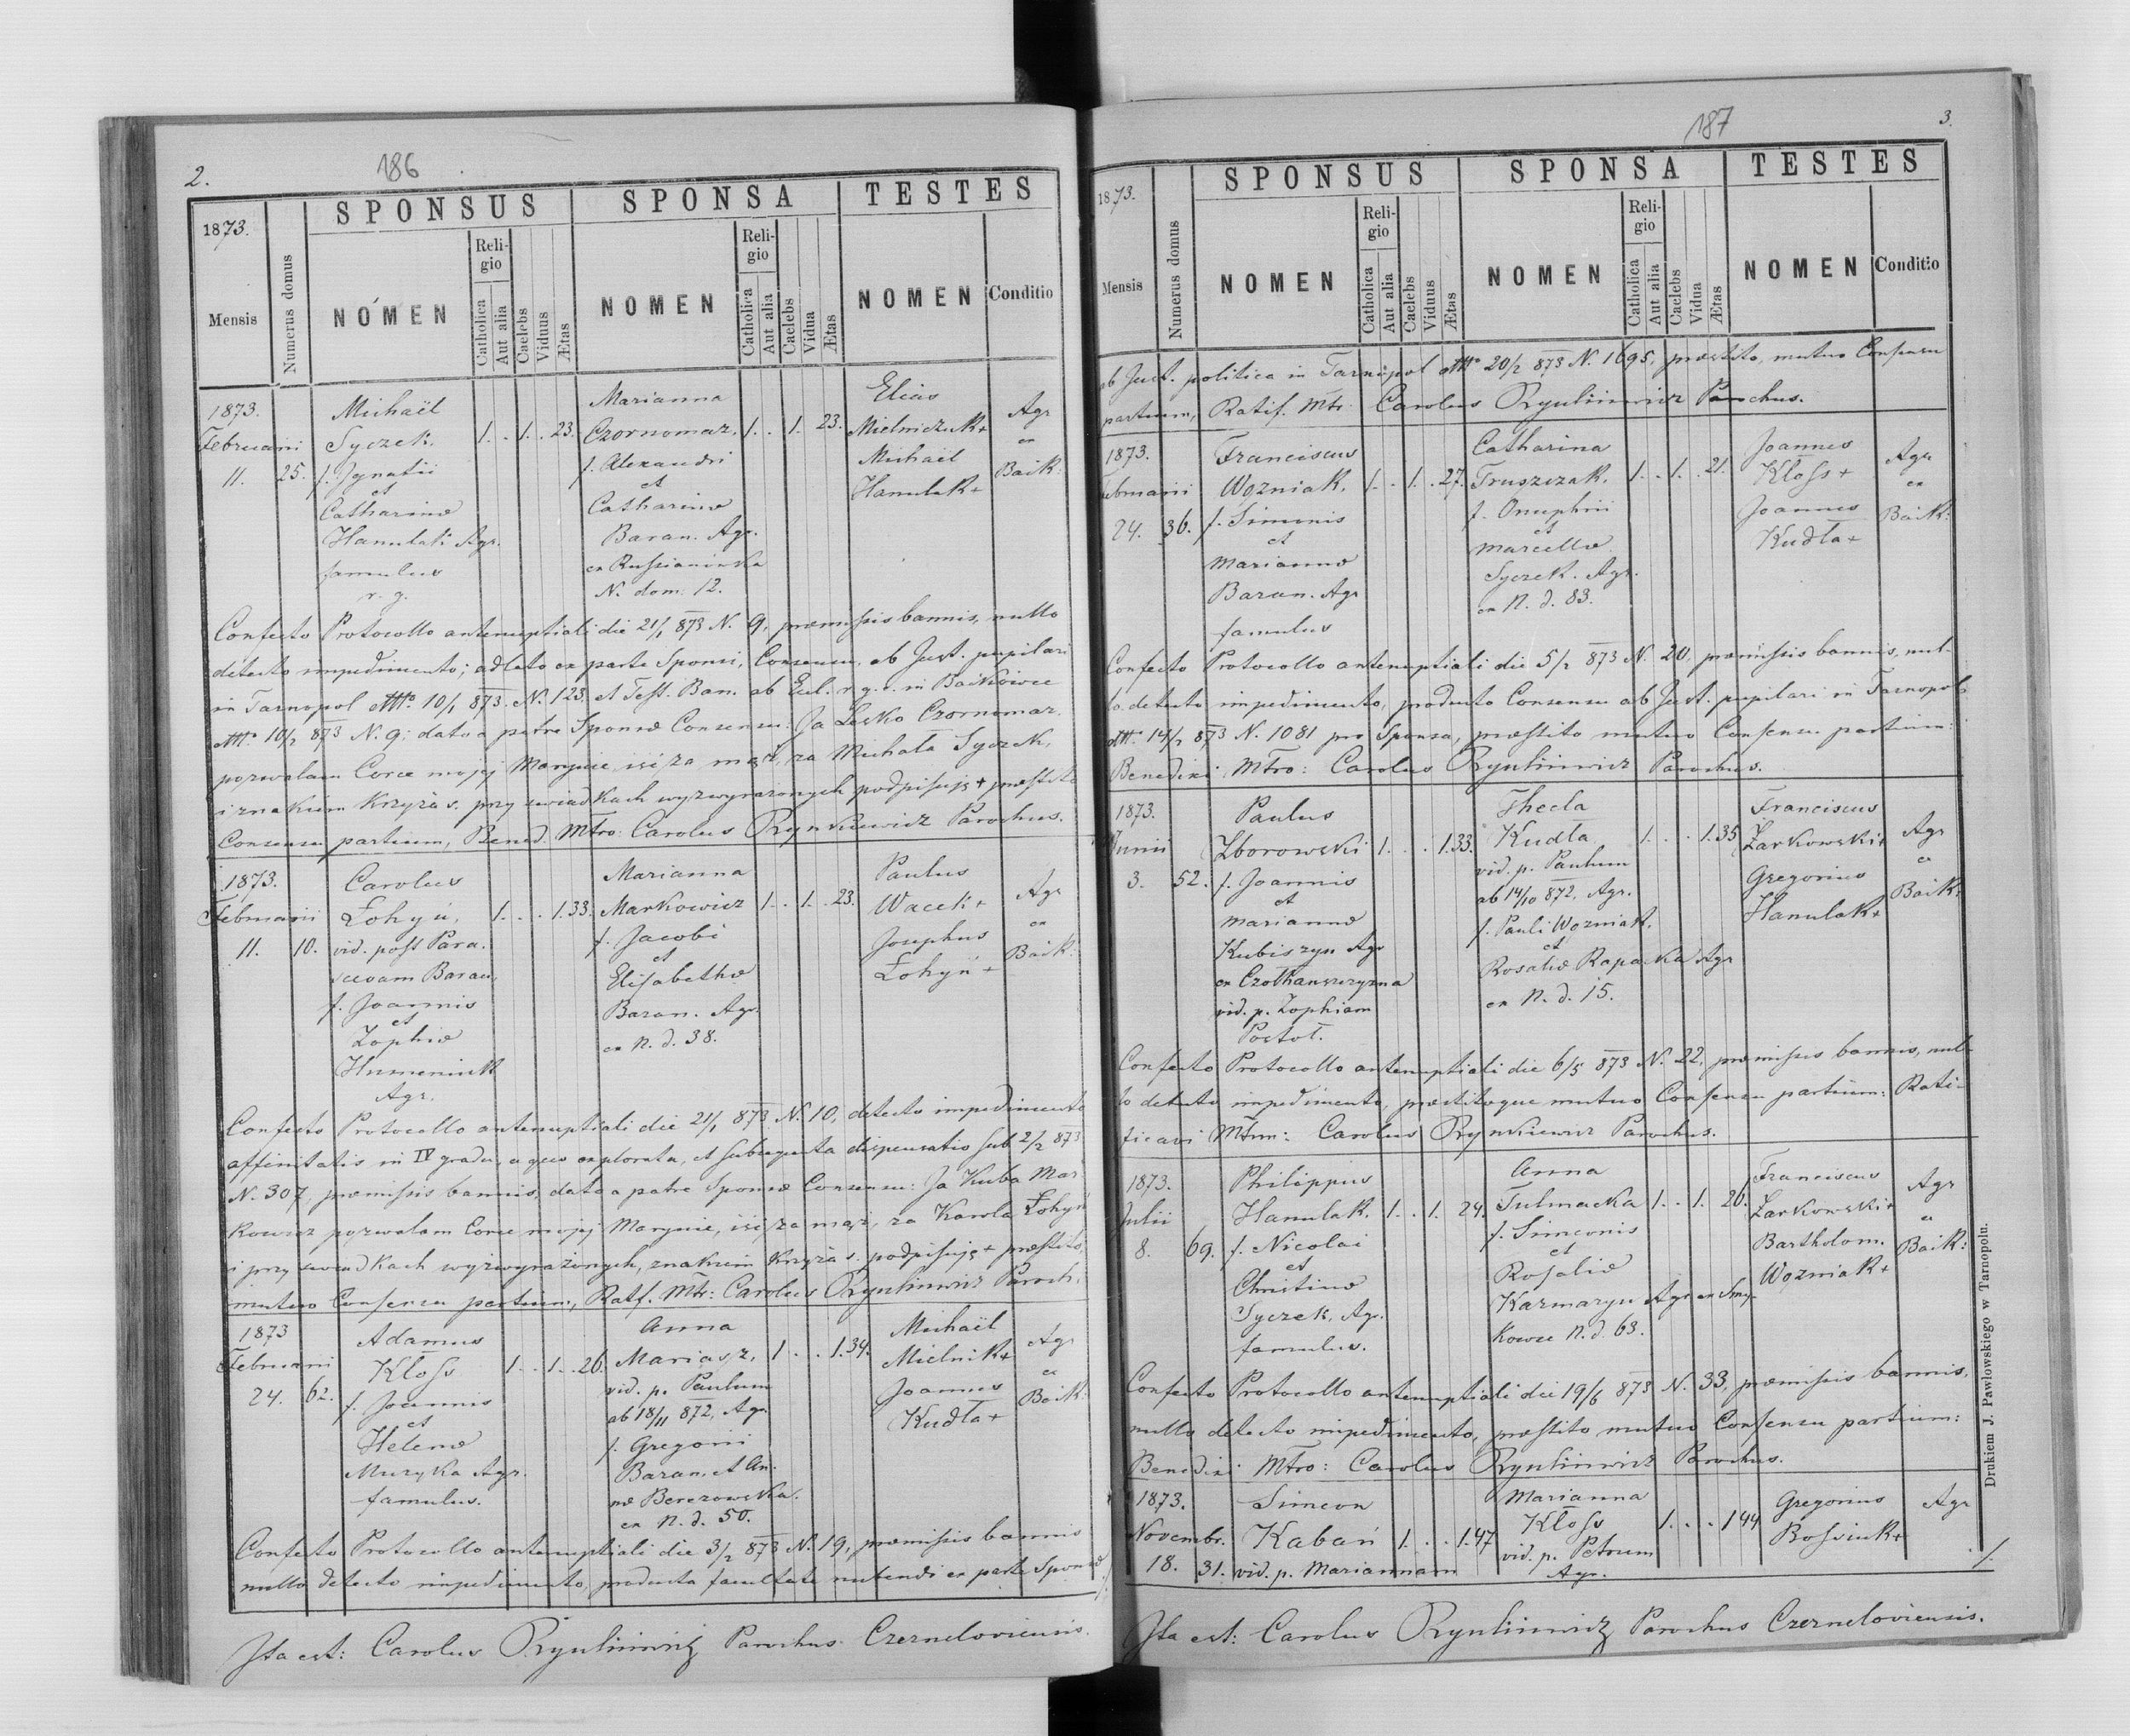 2.
186
1873.
Mensis
Numerus domus
SPONSUS
NOMEN
Religio
Catholica
Aut alia
Caelebs
Viduus
Ætas
SPONSA
NOMEN
Religio
Catholica
Aut alia
Caelebs
Vidua
Ætas
TESTES
NOMEN
Conditio
1873.
Februarii
11.
25.
Michaël
Syczek.
f. Ignatii
et
Catharinæ
Hanulak Agr.
famulus
r. g.
1. . 1. . 23.
Marianna
Czornomaz.
f. Alexandri
et
Catharinæ
Baran. Agr.
ex Russianówka
N. dom. 12.
1. . 1. 23.
Elias
Mielniczuk +
Michaël
Hanulak +
Agr
ex
Baik:
Confecto Protocollo antenuptiali die 21/1 873 N. 9, præmissis bannis, nullo
detecto impedimento; adlato ex parte Sponsi, Consensu, ab Just. pupilari
in Tarnopol dtto 10/1 873. N. 123. et Test. Ban. ab Eccl. r. g. in Baikowce
dtto 10/2 873 N. 9; dato a patre Sponsæ Consensu: Ja Lesko Czornomaz.
pozwalam Corce mojej Marynie, iść za mąż, za Michała Syczek,
i znakiem Krzyża s. przy swiadkach wyzwyrażonych podpisuję + præstito
Consensu partium, Bened. Mtro: Carolus Rynkiewicz Parochus.
1873.
Februarii
11.
10.
Carolus
Łohyń.
vid. post Para-
scevam Baran,
f. Joannis
et
Zophiæ
Humeniuk
Agr.
1. . . 1. 33.
Marianna
Markowicz
f. Jacobi
et
Elisabethæ
Baran. Agr.
ex N. d. 38.
1. . 1. . 23.
Paulus
Wacek +
Josephus
Łohyń +
Agr
ex
Baik:
Confecto Protocollo antenuptiali die 21/1 873 N. 10, detecto impedimento
affinitatis in IV gradu, a quo explorata, et subsequta dispensatio sub 2/2 873
N. 307, præmissis bannis, dato a patre Sponsæ Consensu: Ja Kuba Mar-
kowicz pozwalam Corce mojej Marynie, iść za mąż, za Karola Łohyń
i przy swiadkach wyżwyrażonych, znakiem Krzyża s. podpisuję + præstito,
mutuo Consensu partium, Ratf. Mtr: Carolus Rynkiewicz Paroch.
1873
Februarii
24.
62.
Adamus
Kloss
f. Joannis
et
Helenæ
Muzyka Agr.
famulus.
1. . 1. . 26.
Anna
Mariasz,
vid. p. Paulum
ab 18/11 872, Agr.
f. Gregorii
Baran. et An-
næ Berezowska.
ex N. d. 50.
1 . . 1. 34.
Michaël
Mielnik +
Joannes
Kudła +
Agr
ex
Baik:
Confecto Protocollo antenuptiali die 3/2 873 N. 19, præmissis bannis
nullo detecto impedimento, producta facultate nubendi ex parte Sponsæ
./.
Ita est: Carolus Rynkiewicz Parochus Czerneloviensis.
187
3.
1873.
Mensis
Numerus domus
SPONSUS
NOMEN
Religio
Catholica
Aut alia
Caelebs
Viduus
Ætas
SPONSA
NOMEN
Religio
Catholica
Aut alia
Caelebs
Vidua
Ætas
TESTES
NOMEN
Conditio
ab Just. politica in Tarnopol dtto 20/2 873 N. 1695, præstito, mutuo Consensu
partium, Ratif. Mtr: Carolus Rynkiewicz Parochus.
1873.
Februarii
24.
36.
Franciscus
Wozniak.
f. Simonis
et
Mariannæ
Baran. Agr
famulus
1. . 1. . 27.
Catharina
Truszczak.
f. Onuphrii
et
Marcellæ
Syczek. Agr.
ex N. d. 83.
1. . 1. . 21.
Joannes
Kloss +
Joannes
Kudła +
Agr
ex
Baik:
Confecto Protocollo antenuptiali die 5/2 873 N. 20, præmissis bannis, nul-
lo detecto impedimento, producto Consensu ab Just. pupilari in Tarnopol
dtto 14/2 873 N. 1081 pro Sponsa, præstito mutuo Consensu partium:
Benedixi Mtro: Carolus Rynkiewicz Parochus.
1873.
Junii
3.
52.
Paulus
Zborowski
f. Joannis
et
Mariannæ
Kubiszyn Agr
ex Czołhanszczyzna
vid. p. Zophiam
Postoł.
1. . . 1. 33.
Thecla
Kudła
vid. p. Paulum
ab 14/10 872, Agr.
f. Pauli Wozniak.
et
Rosaliæ Rapacka Agr
ex N. d. 15.
1. . . 1. 35
Franciscus
Żarkowski +
Gregorius
Hanulak +
Agr
ex
Baik:
Confecto Protocollo antenuptiali die 6/5 873 N. 22, præmissis bannis, nul-
lo detecto impedimento, præstitoque mutuo Consensu partium: Rati-
ficavi Mtum: Carolus Rynkiewicz Parochus.
1873.
Julii
8.
69.
Philippus
Hanulak.
f. Nicolai
et
Christinæ
Syczek. Agr.
famulus.
1. . 1. 24.
Anna
Tulmacka
f. Simeonis
et
Rosaliæ
Karmazyn Agr ex Smy-
kowce N. d. 63.
1. . 1. 26.
Franciscus
Żarkowski +
Bartholom.
Wozniak +
Agr
ex
Baik:
Confecto Protocollo antenuptiali die 19/6 873 N. 33, præmissis bannis,
nullo detecto impedimento, præstito mutuo Consensu partium:
Benedixi Mtro: Carolus Rynkiewicz Parochus.
1873.
Novembr.
18.
31.
Simeon
Kabań
vid. p. Mariannam
1. . . 1. 47
Marianna
Kloss
vid. p. Petrum
Agr.
1. . . 1 44
Gregorius
Bossiuk +
Agr
./.
Ita est: Carolus Rynkiewicz Parochus Czerneloviensis.
Drukiem J. Pawłowskiego w Tarnopolu.